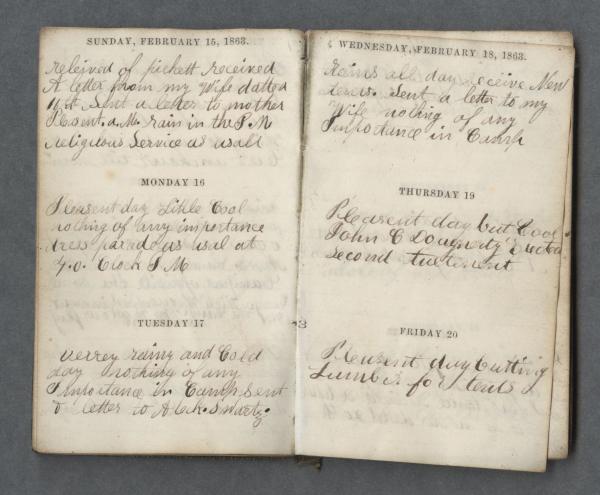 SUNDAY, FEBRUARY 15, 1863.
releived of pickett received
A letter from my Wife datted
11th Sent a letter to mother
Plesent. A.M. rain in the P.M
religious Service as usall
MONDAY 16
Plensent day Little Cool
nothing of any importance
dress parade as usal at
4. O. Clock P M
TUESDAY 17
verrey rainy and Cold
day nothing of any
Importance in Camp Sent
a letter to A Swartz.
WEDNESDAY, FEBRUARY 18, 1863.
Rains all day receive New
Sent a letter to my
Wife nothing of any
Importance in Camp
THURSDAY 19
Pleasent day but Cool
John C Dougherty
Second
3
FRIDAY 20
Plensent day Cutting
Lumber for tents